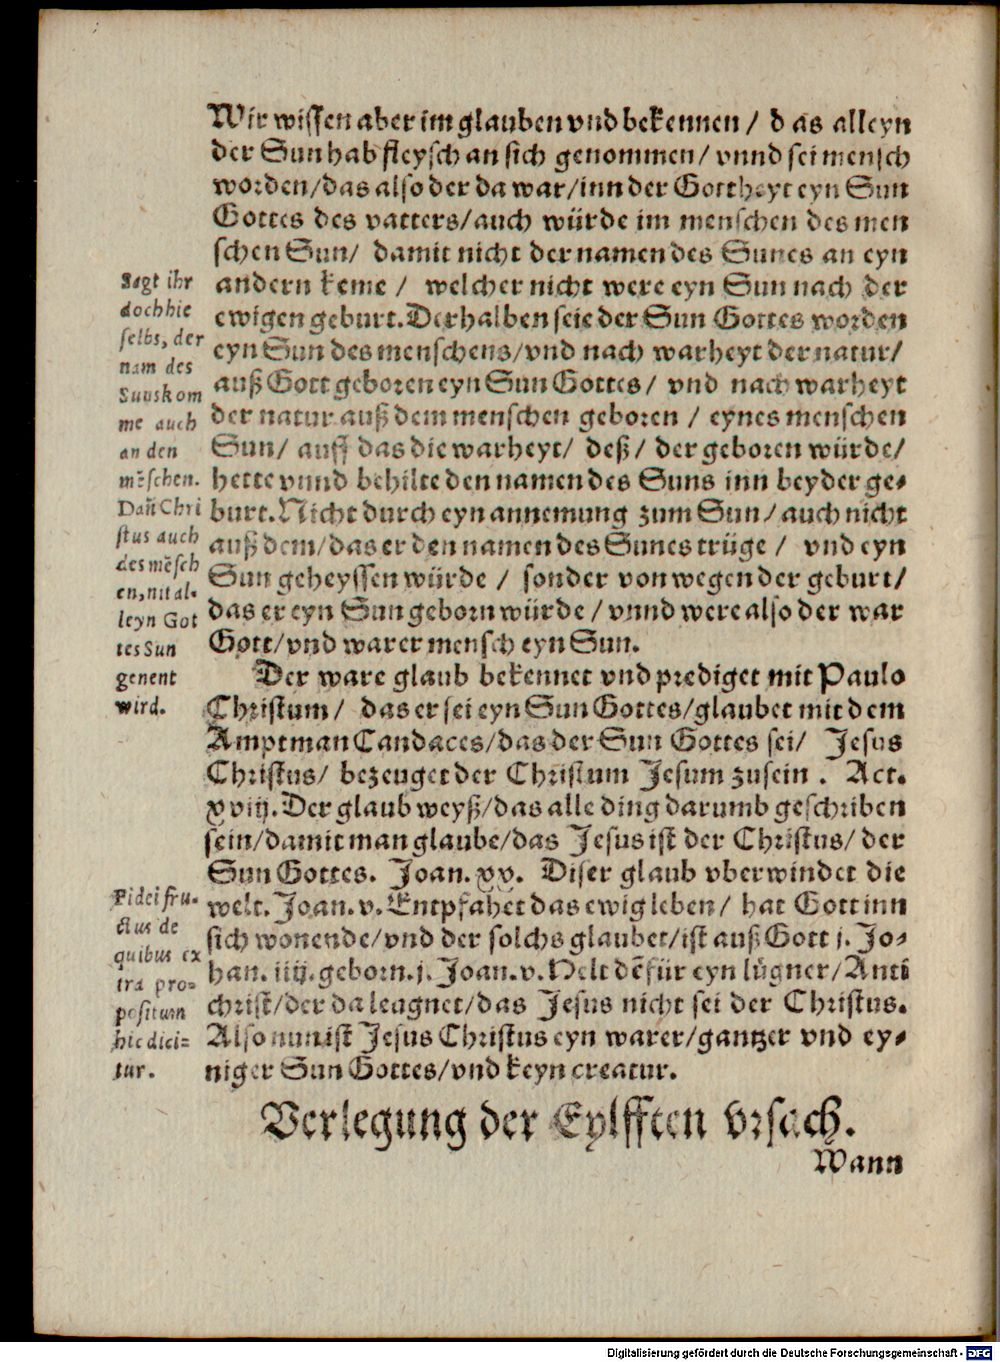 Wir wissen aber im glauben vnd bekennen / das alleyn
der Sun hab fleysch an sich genommen / vnnd sei mensch
worden/das also der da war/inn der Gottheyt eyn Sun
Gottes des vatters/auch würde im menschen des men
schen Sun/ damit nicht der namen des Sunes an eyn
andern keme / welcher nicht were eyn Sun nach der
ewigen geburt. Derhalben seie der Sun Gottes worden
eyn Sun des menschens/vnd nach warheyt der natur/
auß Gott geboren eyn Sun Gottes/ vnd nach warheyt
der natur auß dem menschen geboren / eynes menschen
Sun/ auff das die warheyt/ deß/ der geboren würde/
hette vnnd behilte den namen des Suns inn beyder ge-
burt. Nicht durch eyn annemung zum Sun/auch nicht
auß dem/das er den namen des Sunes trüge / vnd eyn
Sun geheyssen würde / sonder von wegen der geburt/
das er eyn Sun geborn würde / vnnd were also der war
Gott/vnd warer mensch eyn Sun.
Sagt ihr
doch hie
selbs, der
nam des
Suns kom
me auch
an den
mẽschen.
Dañ Chri
stus auch
des mẽsch
en, nit al-
leyn Got
tes Sun
genent
wird.
Der ware glaub bekennet vnd prediget mit Paulo
Christum/ das er sei eyn Sun Gottes/glaubet mit dem
Amptman Candaces/das der Sun Gottes sei/ Jesus
Christus/ bezeuget der Christum Jesum zusein . Act.
xviij. Der glaub weyß/das alle ding darumb geschriben
sein/damit man glaube/das Jesus ist der Christus/ der
Sun Gottes. Joan. xx. Diser glaub vberwindet die
welt. Joan. v. Entpfahet das ewig leben/ hat Gott inn
sich wonende/vnd der solchs glaubet/ist auß Gott j. Jo-
han. iiij. geborn. j. Joan. v. Helt dẽ für eyn lůgner/Anti
christ/der da leugnet/das Jesus nicht sei der Christus.
Also nun ist Jesus Christus eyn warer/gantzer vnd ey-
niger Sun Gottes/vnd keyn creatur.
Fidei fru-
ctus de
quibus ex
tra pro-
positum
hic dici=
tur.
Verlegung der Eylfften vrsach.
Wann
Digitalisierung gefördert durch die Deutsche Forschungsgemeinschaft - DFG